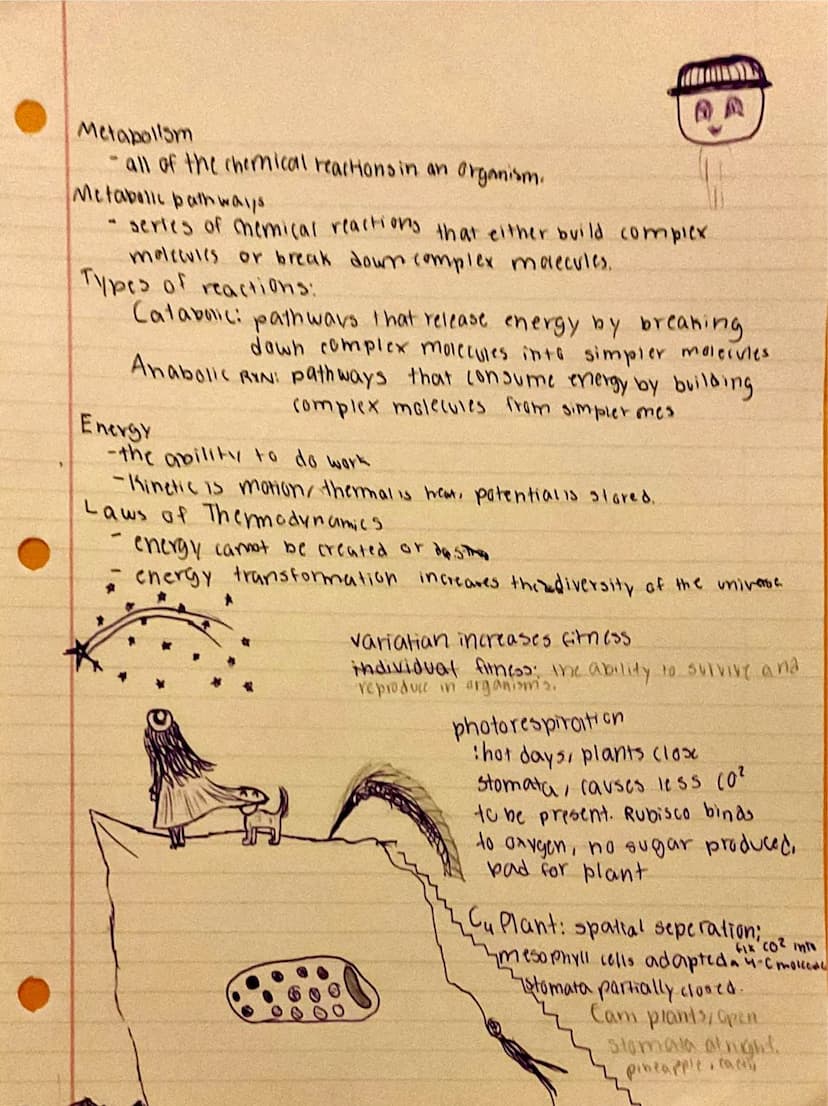 Metabolism
- all of the chemical reactions in an organism.
Metabolic pathways
- series of chemical reactions that either build complex
molecules or break down complex molecules.
Types of reactions:
Catabolic: pathways that release energy by breaking
down complex molecules into simpler molecules
Anabolic RXN: pathways that consume energy by building
complex molecules from simpler ones
Energy
- the ability to do work
- Kinetic is motion, thermal is heat, potential is stored.
Laws of Thermodynamics
- energy cannot be created or
- energy transformation increases the diversity of the universe
variation increases fitness
individual fitness: the ability to survive and
reproduce in organisms.
photorespiration
: hot days, plants close
stomata, causes less CO²
to be present. Rubisco binds
to oxygen, no sugar produced,
bad for plant
C4 Plant: spatial seperation;
mesophyll cells adapted fix CO² into
a 4-C molecule
stomata partially closed.
Cam plants, open
stomata at night.
pineapple, cacti